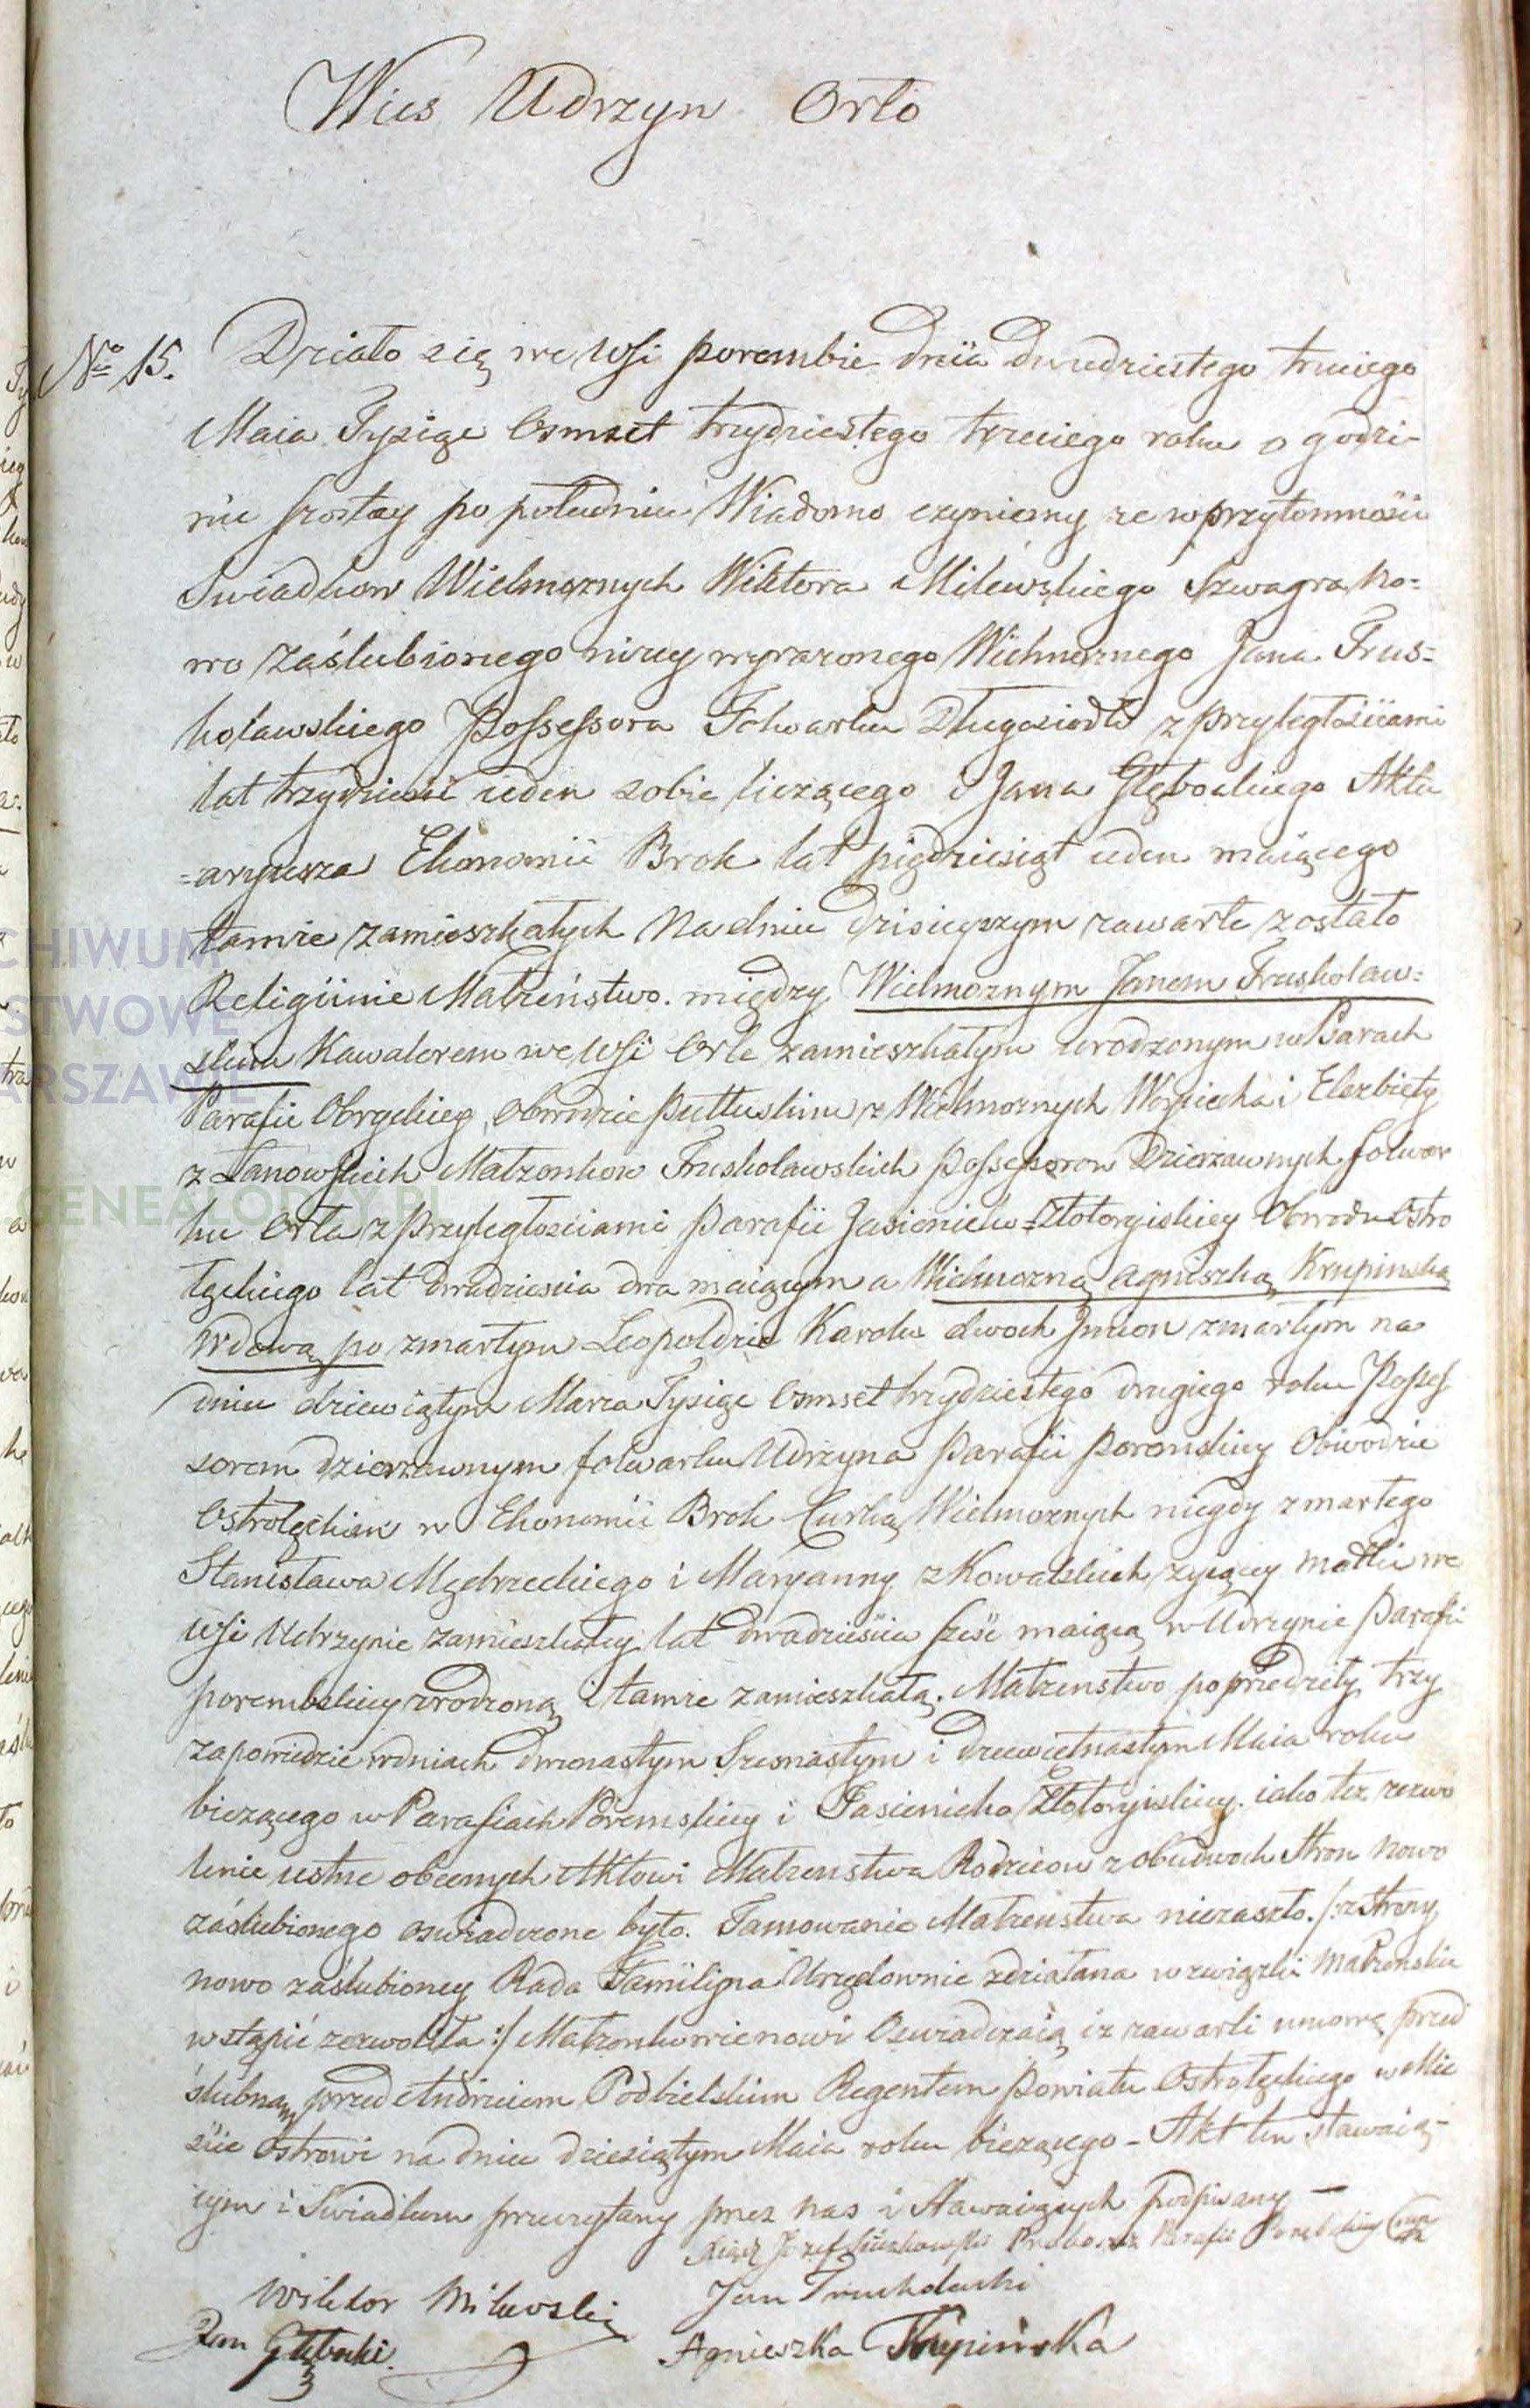 Wies Udrzyn Orło
No 15. Działo się we Wsi Porembie dnia Dwudziestego trzeciego
Maia Tysiąc Osmset trzydziestego trzeciego roku o godzi-
nie szostey po południu Wiadomo czyniemy ze w przytomnosci
Swiadkow Wielmoznych Wiktora Milewskiego Szwagra No=
wo zaślubionego nizey wyrazonego Wielmoznego Jana Trus=
kolawskiego Possessora Folwarku Długosiodło z przyległościami
lat trzydziesci ieden sobie liczącego i Jana Głębockiego Aktu
=aryusza Ekonomii Brok lat piędziesiąt ieden maiącego
tamze zamieszkałych Na dniu dzisieyszym zawarte zostało
Religiinie Małzeństwo między Wielmoznym Janem Truskolaw=
skim Kawalerem we Wsi Orle zamieszkałym urodzonym w Psarach
Parafii Obryckiey, Obwodzie Pułtuskim z Wielmoznych Woyciecha i Elzbiety
z Łanowskich Małzonkow Truskolawskich Possessorow Dzierzawnych folwar
ku Orła z przyległościami Parafii Jasienicko=Złotoryiskiey Obwodu Ostro
łęckiego lat dwadziescia dwa maiącym a Wielmozną Agniszką Krupinską
Wdową po zmarłym Leopoldzie Karolu dwoch Jmion zmarłym na
dniu dziewiątym Marca Tysiąc Osmset trzydziestego drugiego roku Posses
sorem dzierzawnym folwarku Udrzyna Parafii Poremskiey Obwodzie
Ostrołęckim w Ekonomii Brok Curką Wielmoznych niegdy zmarłego
Stanisława Mędrzeckiego i Maryanny z Kowalskich zyiącey matki we
Wsi Udrzynie zamieszkałey lat dwadziescia sześć maiącą w Udrzynie Parafii
porembskiey urodzoną i tamze zamieszkałą. Małzenstwo poprzedziły trzy
zapowiedzie w dniach dwunastym Szesnastym i dziewietnastym Maia roku
biezącego w Parafiach Poremskiey i Jasienicko Złotoryiskiey. iako tez zezwo
lenie ustne obecnych Aktowi Małzenstwa Rodzicow z obudwoch Stron Nowo
zaślubionego oswiadczone było. Tamowanie Małzeństwa niezaszło. /:z Strony
nowo zaślubioney Rada Familiyna Urzędownie zdziałana w związki Małzenskie
wstąpić zezwoliła:/ Małzonkowie nowi Oswiadczaią iz zawarli umowę przed
ślubną przed Andrzeiem Podbielskim Regentem Powiatu Ostrołęckiego w Mie
ście Ostrowi na dniu dziesiątym Maia roku biezącego - Akt ten stawaią-
cym i Swiadkom przeczytany przez nas i Stawaiących podpisany —
Xiądz Jozef Proboszcz Parafii Porębskiey
Wiktor Milewski Jan Truskolaski
Jan Głębocki. Agnieszka Krupińska